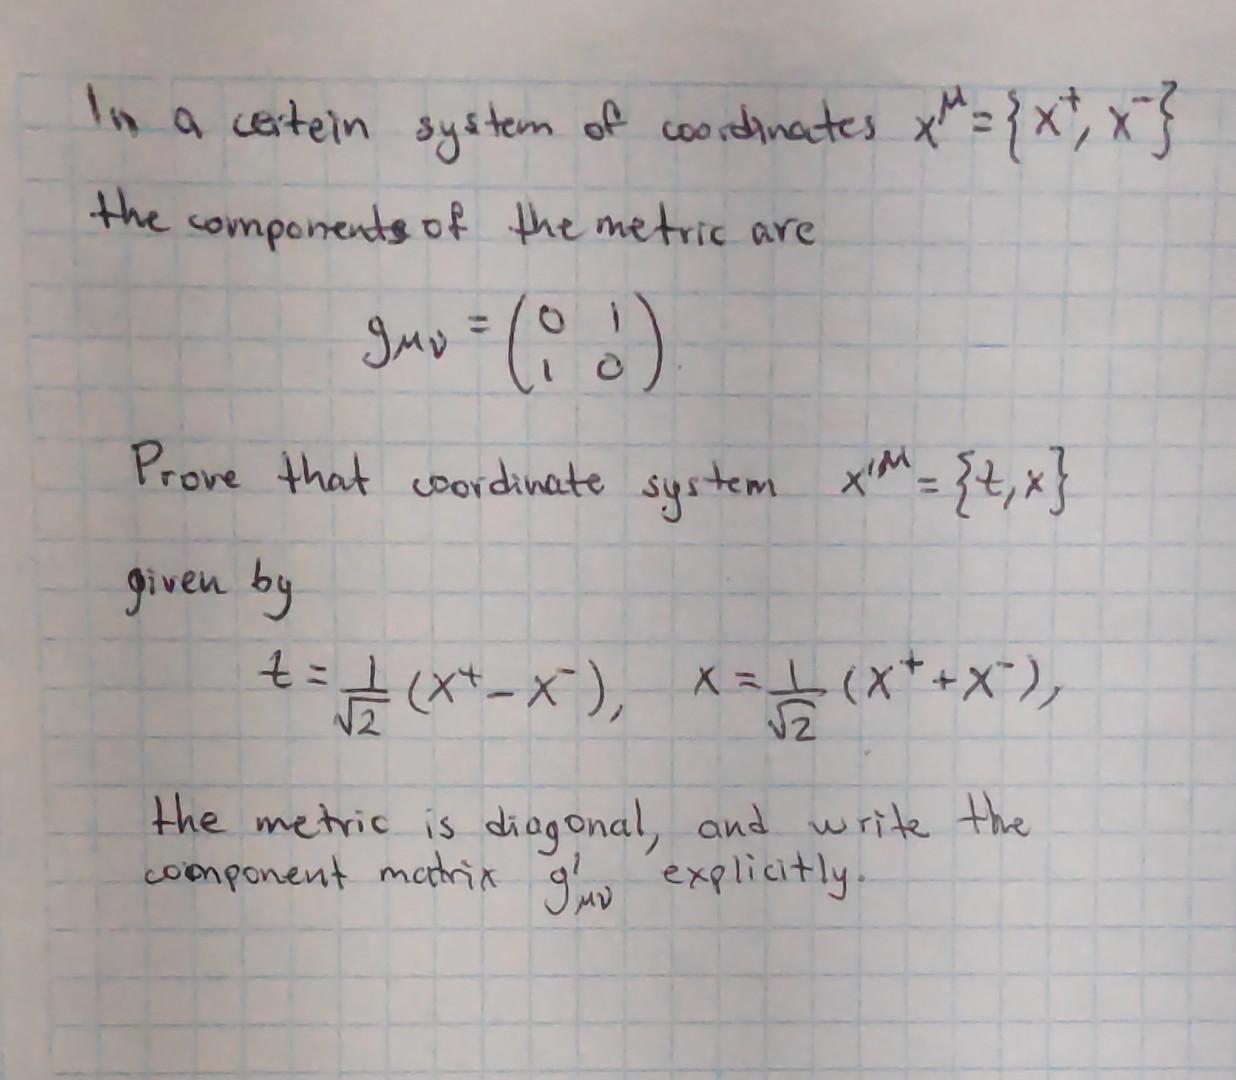 In a certein system of coordinates x^μ = {x⁺, x⁻}
the components of the metric are
g_μν = (0 1
1 0).
Prove that coordinate system x'^μ = {t, x}
given by
t = 1/√2 (x⁺ - x⁻), x = 1/√2 (x⁺ + x⁻),
the metric is diagonal, and write the
component matrix g'_μν explicitly.